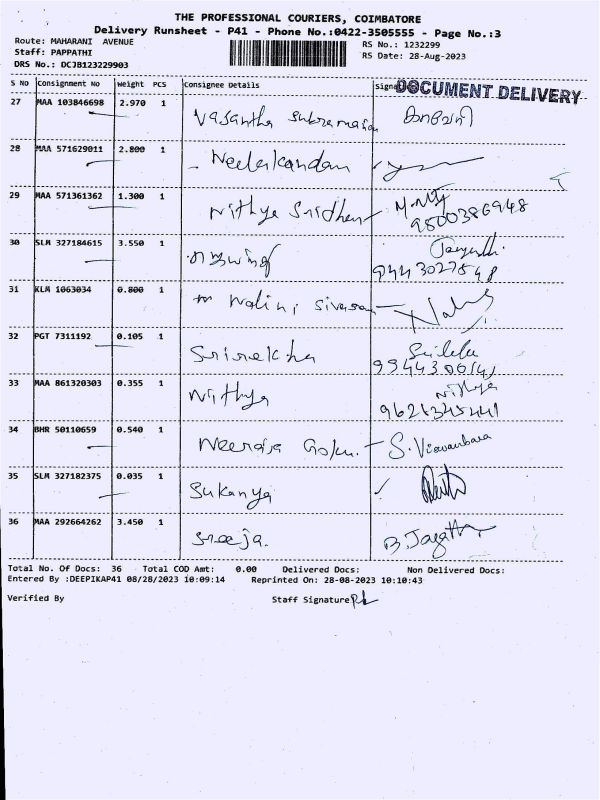 THE PROFESSIONAL COURIERS, COIMBATORE
Delivery Runsheet - P41 - Phone No.:0422-3505555 - Page No.:3
Route: MAHARANI AVENUE RS No.: 1232299
Staff: PAPPATHI RS Date: 28-Aug-2023
DRS No.: DCJB123229903
S NO Consignment No Weight PCS Consignee Details DOCUMENT DELIVERY
27 MAA 103846698 2.970 1 Vasantha Subramanian
28 MAA 571629011 2.800 1 Neelakandan
29 MAA 571361362 1.300 1 Nithya Sridhar
9500386948
30 SLM 327184615 3.550 1
9443027548
31 KLM 1063034 0.800 1 Nalini Sivaram
32 PGT 7311192 0.105 1 Srirekha
33 MAA 861320303 0.355 1 Nithya Nithya
9621345441
34 BHR 50110659 0.540 1 Neeraja Goku. S. Viswambara
35 SLM 327182375 0.035 1 Sukanya
36 MAA 292664262 3.450 1 Sreeja. B. Jagatha
Total No. Of Docs: 36 Total COD Amt: 0.00 Delivered Docs: Non Delivered Docs:
Entered By :DEEPIKAP41 08/28/2023 10:09:14 Reprinted On: 28-08-2023 10:10:43
Verified By Staff Signature